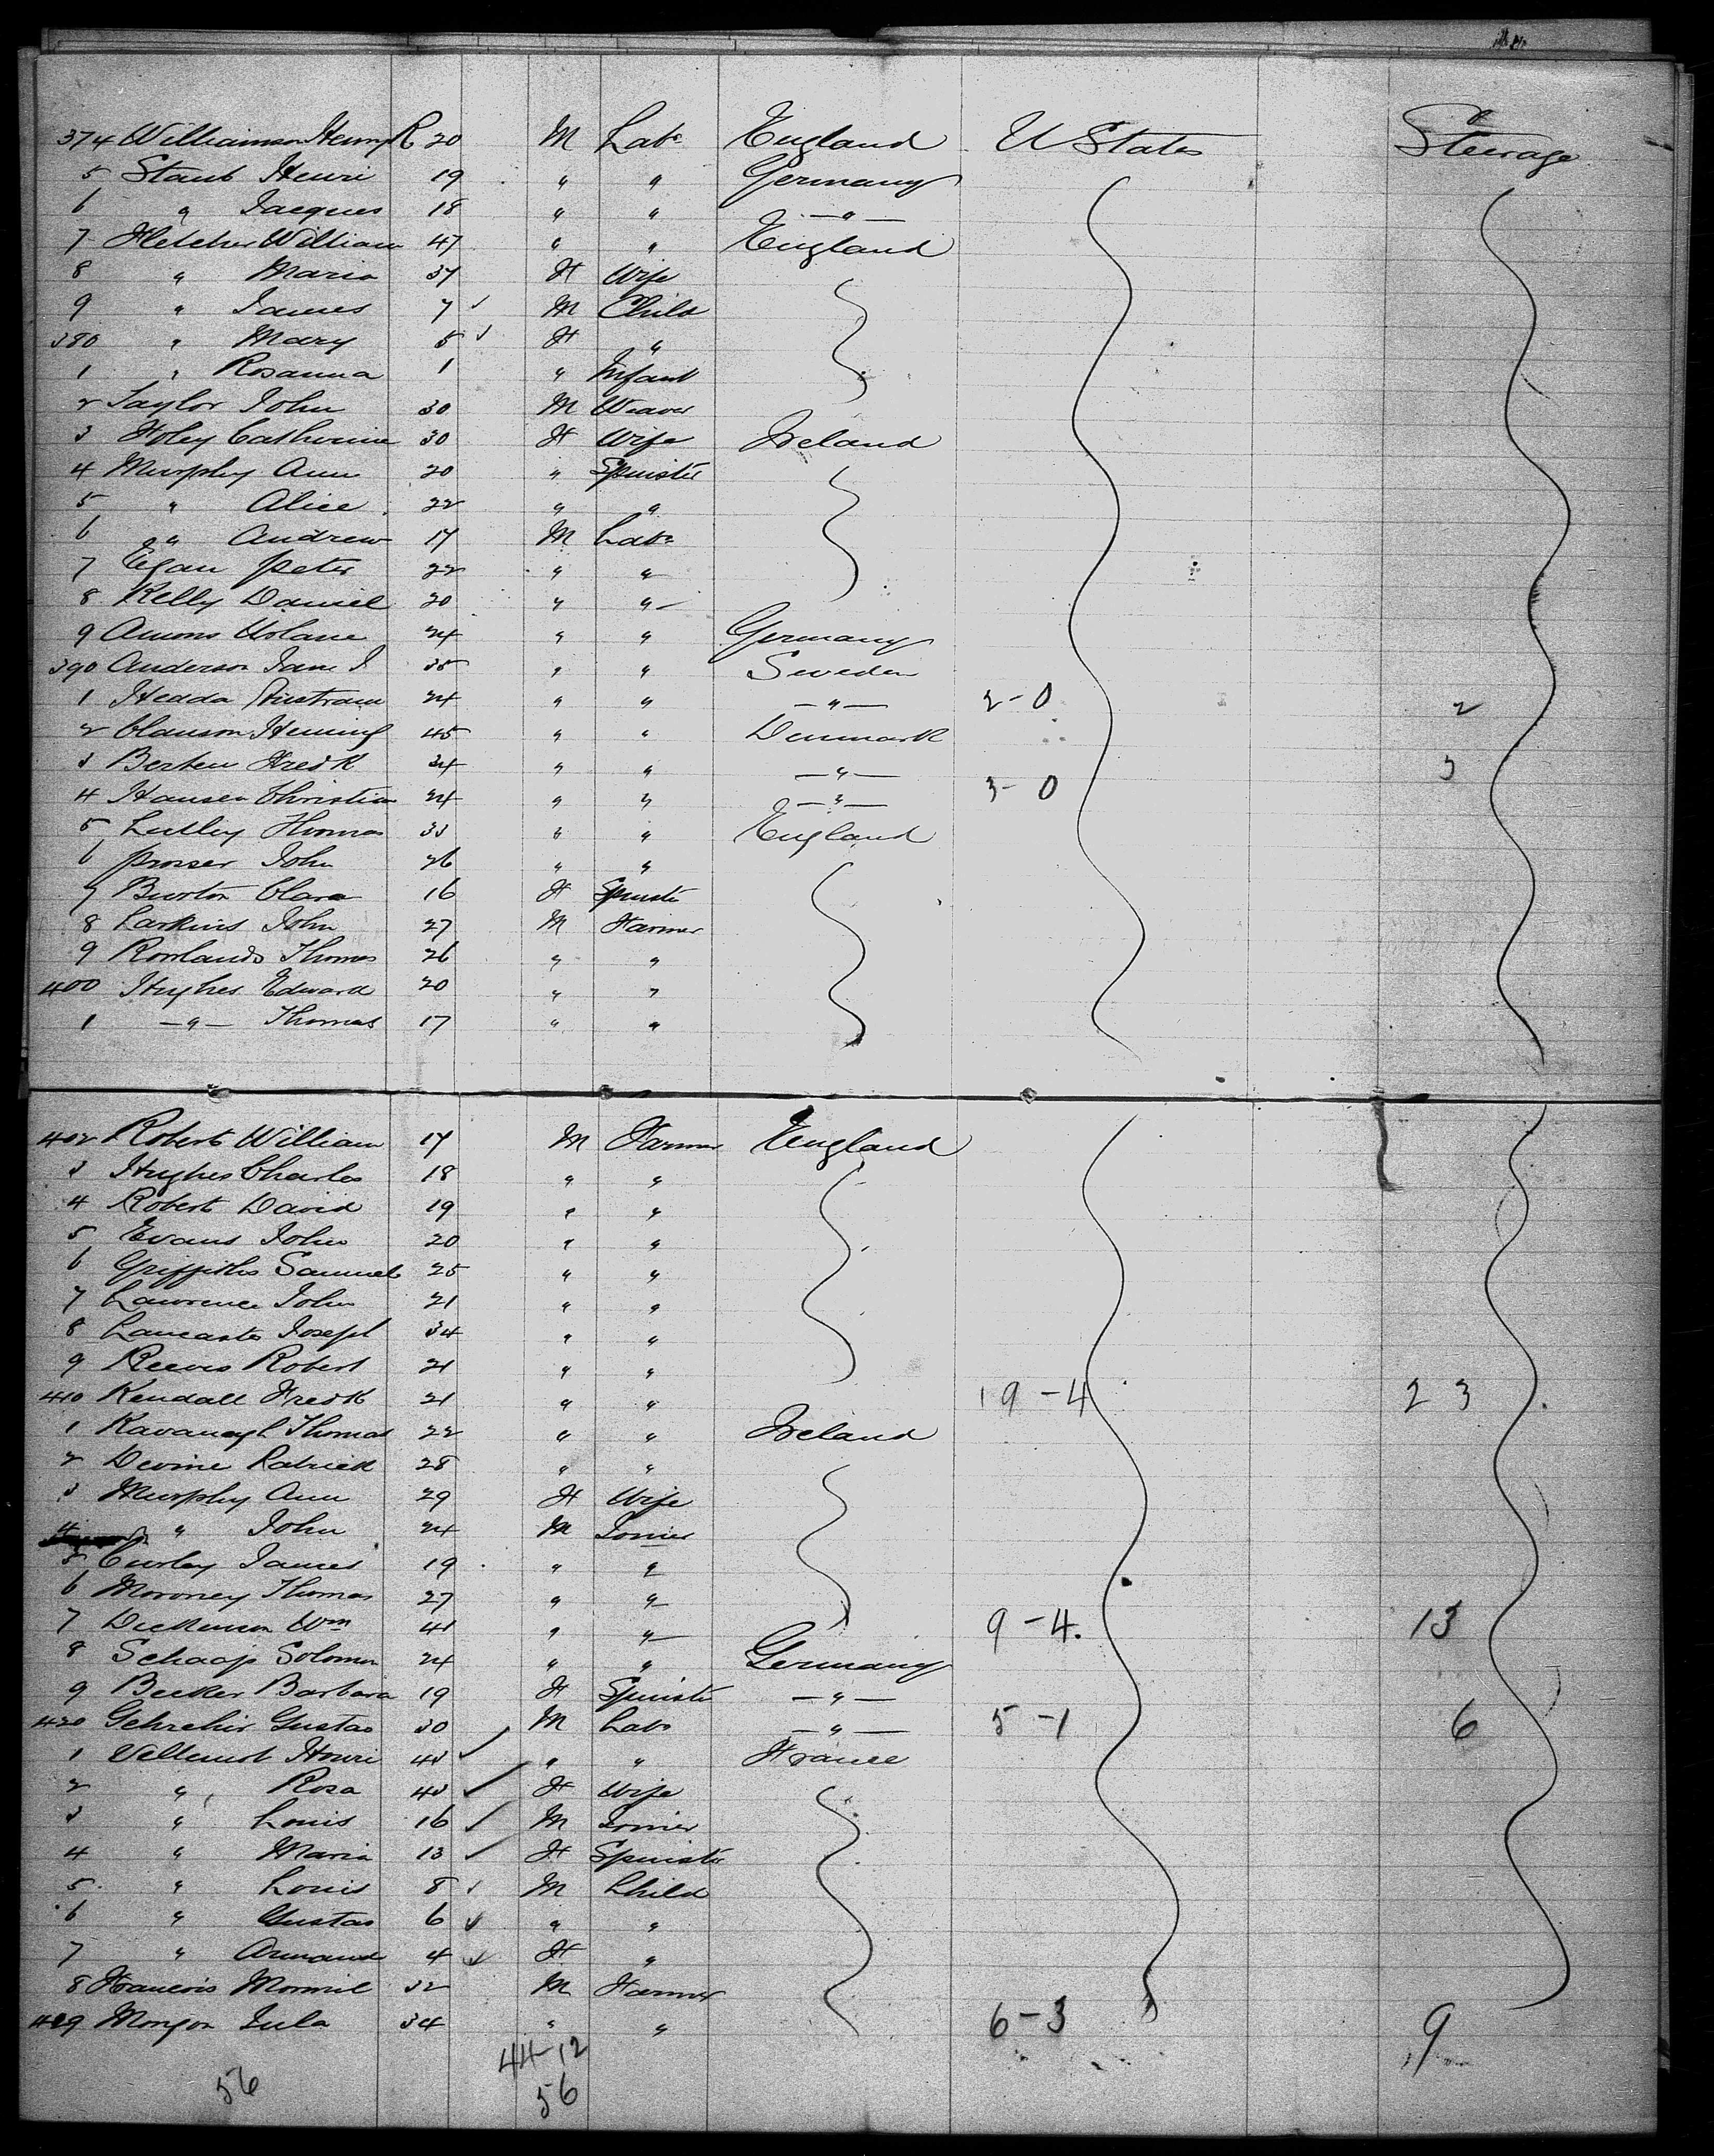 374 Williamson Henry R 20 M Labr England U States Steerage
5 Staub Henri 19 " " Germany
6 " Jacques 18 " " — " —
7 Fletcher William 47 " " England
8 " Maria 37 F Wife
9 " James 7 ✓ M Child
380 " Mary 5 ✓ F "
1 " Rosanna 1 " Infant
2 Taylor John 30 M Weaver
3 Foley Catherine 30 F Wife Ireland
4 Murphy Ann 20 " Spinster
5 " Alice 22 " "
6 " Andrew 17 M Labr
7 Egan Peter 22 " "
8 Kelly Daniel 20 " "
9 Amons 24 " " Germany
390 Anderson Jane J 35 " " Sweden
1 Hedda 24 " " — " — 2-0 2
2 Clauson Hening 45 " " Denmark
3 Berten Fredk 34 " " — " — 3
4 Hansen Christian 24 " " — " — 3-0
5 Lutley Thomas 33 " " England
6 Prosser John 26 " "
7 Burton Clara 16 F Spinstr
8 Larkins John 27 M Farmer
9 Rowlands Thomas 26 " "
400 Hughes Edward 20 " "
1 — " — Thomas 17 " "
402 Roberts William 17 M Farmer England
3 Hughes Charles 18 " "
4 Robert David 19 " "
5 Evans John 20 " "
6 Griffiths Samuel 25 " "
7 Lawrence John 21 " "
8 Lancaster Joseph 34 " "
9 Reeves Robert 21 " "
410 Kendall Fredk 21 " " 19-4 23
1 Kavanagh Thomas 22 " " Ireland
2 Devine Patrick 28 " "
3 Murphy Ann 29 F Wife
4 " John 24 M Joiner
5 Curley James 19 " "
6 Moroney Thomas 27 " "
7 Dickenson Wm 41 " " 9-4. 13
8 Schaap Solomon 24 " " Germany
9 Becker Barbara 19 F Spinstr — " —
420 Gustav 30 M Labr — " — 5-1 6
1 Henri 43 ✓ " " France
2 " Rosa 43 ✓ F Wife
3 " Louis 16 ✓ M Joiner
4 " Maria 13 ✓ F Spinstr
5 " Louis 8 ✓ M Child
6 " Gustav 6 ✓ " "
7 " Armand 4 ✓ F "
8 Francois 32 M Farmer
429 Mongon Jula 34 " " 6-3 9
44-12
56 56